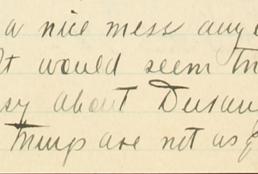 a nice mess any
It would seem
about
Things are not as